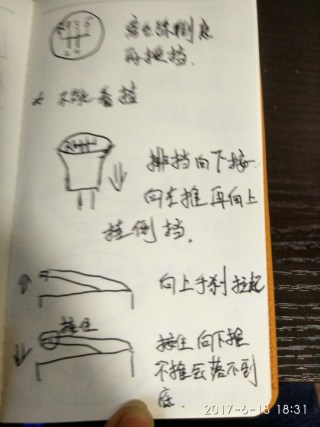 离合踩到底
再换挡.
* 不能看挡
排挡向下按
向左推再向上
挂倒挡.
向上手刹拉起
按住
按住向下推
不推会落不到
底.
2017-6-18 18:31